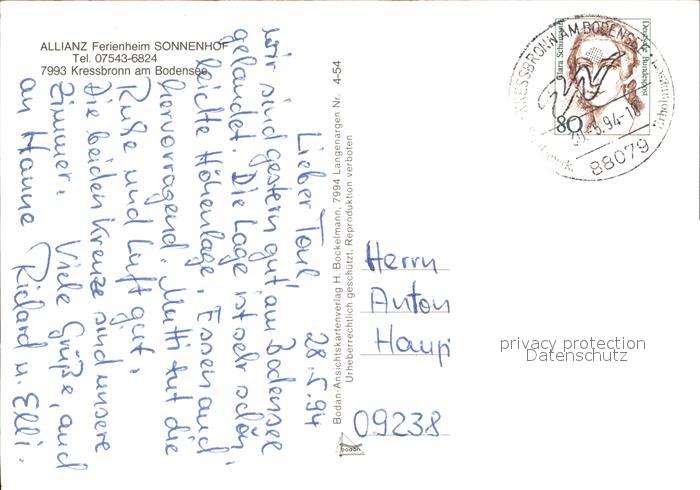 ALLIANZ Ferienheim SONNENHOF
Tel. 07543-6824
7993 Kressbronn am Bodensee
28.5.94
Lieber Toni,
wir sind gestern gut am Bodensee
gelandet. Die Lage ist sehr schön,
leichte Höhenlage. Essen auch
hervorragend. Mutti tut die
Ruhe und Luft gut.
Die beiden Kreuze sind unsere
Zimmer. Viele Grüße, auch
an Hanne Richard u. Elli.
Bodan-Ansichtskartenverlag H. Bockelmann, 7994 Langenargen Nr. 4-54
Urheberrechtlich geschützt, Reproduktion verboten
bodan
KRESSBRONN AM BODENSEE
.5.94-1
88079
Clara Schumann
Deutsche Bundespost
80
Herrn
Anton
Haupt
09238
privacy protection
Datenschutz